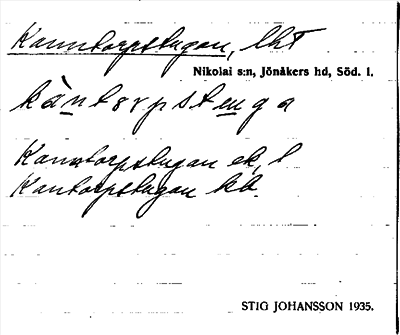 Kanntorpstugan, lht
Nikolai s:n, Jönåkers hd, Söd. l.
Kanntorpstugan ek, l
Kantorpstugan kb.
STIG JOHANSSON 1935.